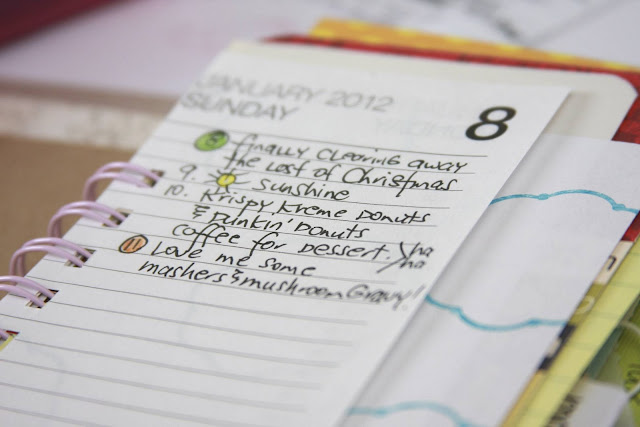 JANUARY 2012
SUNDAY
8
8 finally clearing away
the last of Christmas
9. sunshine
10. Krispy Kreme Donuts
& Dunkin' Donuts
coffee for dessert. ha ha
11 Love me some
mashers & mushroom Gravy!